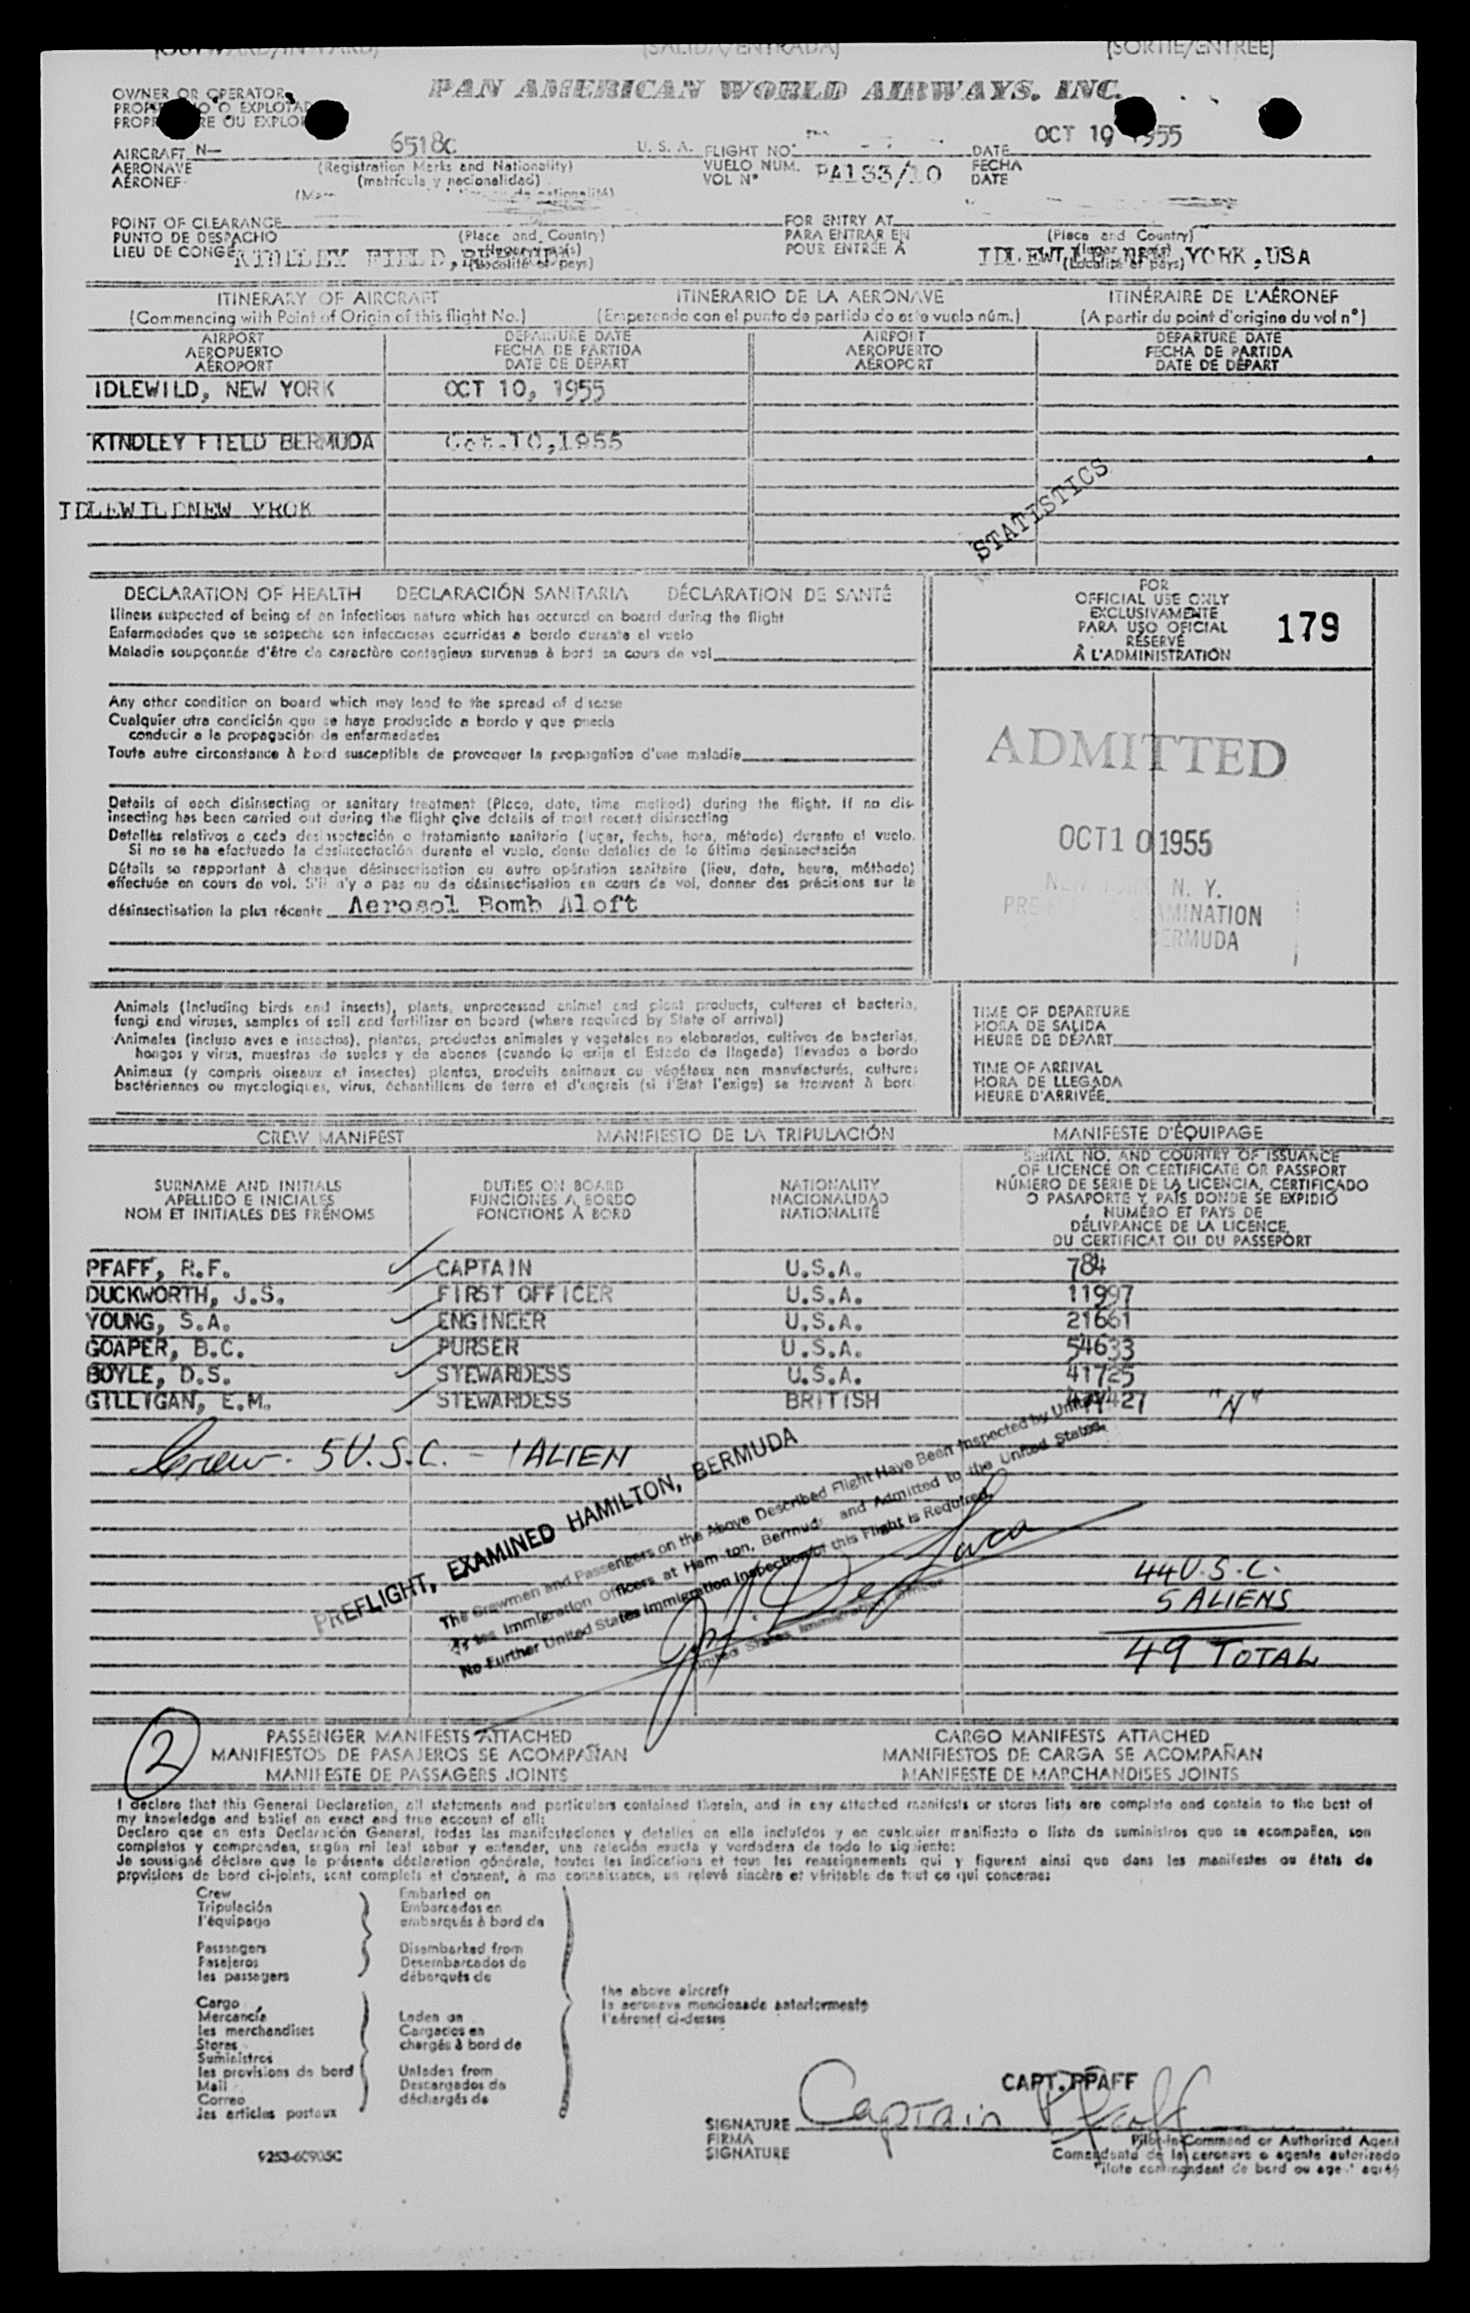 (OUTWARD/INWARD) (SALIDA/ENTRADA) (SORTIE/ENTREE)
OWNER OR OPERATOR PAN AMERICAN WORLD AIRWAYS, INC.
AIRCRAFT N- 6518C U. S. A. FLIGHT NO. DATE OCT 10 1955
AERONAVE (Registration Marks and Nationality) VUELO NUM. PA133/10 FECHA
AÉRONEF (matrícula y nacionalidad) VOL N° DATE
POINT OF CLEARANCE FOR ENTRY AT
PUNTO DE DESPACHO (Place and Country) PARA ENTRAR EN (Place and Country)
LIEU DE CONGÉ KINDLEY FIELD, POUR ENTRÉE À YORK, USA
ITINERARY OF AIRCRAFT ITINERARIO DE LA AERONAVE ITINÉRAIRE DE L'AÉRONEF
(Commencing with Point of Origin of this flight No.) (Empezando con el punto de partida de este vuelo núm.) (A partir du point d'origine du vol n°)
AIRPORT DEPARTURE DATE AIRPORT DEPARTURE DATE
AEROPUERTO FECHA DE PARTIDA AEROPUERTO FECHA DE PARTIDA
AÉROPORT DATE DE DÉPART AÉROPORT DATE DE DÉPART
IDLEWILD, NEW YORK OCT 10, 1955
KINDLEY FIELD BERMUDA Oct.10,1955
STATISTICS
IDLEWILDNEW YROK
DECLARATION OF HEALTH DECLARACIÓN SANITARIA DÉCLARATION DE SANTÉ
Illness suspected of being of an infectious nature which has occured on board during the flight
Enfermedades que se sospecha son infecciosas ocurridas a bordo durante el vuelo
Maladie soupçonnée d'être de caractère contagieux survenue à bord en cours de vol
FOR
OFFICIAL USE ONLY
EXCLUSIVAMENTE
PARA USO OFICIAL
RÉSERVÉ
À L'ADMINISTRATION
179
Any other condition on board which may lead to the spread of disease
Cualquier otra condición que se haya producido a bordo y que pueda
conducir a la propagación de enfermedades
Toute autre circonstance à bord susceptible de provoquer la propagation d'une maladie
ADMITTED
OCT 10 1955
N. Y.
Details of each disinsecting or sanitary treatment (Place, date, time method) during the flight. If no dis-
insecting has been carried out during the flight give details of most recent disinsecting
Detalles relativos a cada desinsectación o tratamiento sanitario (lugar, fecha, hora, método) durante el vuelo.
Si no se ha efectuado la desinsectación durante el vuelo, dense detalles de la última desinsectación
Détails se rapportant à chaque désinsectisation ou autre opération sanitaire (lieu, date, heure, méthode)
effectuée en cours de vol. S'il n'y a pas eu de désinsectisation en cours de vol, donner des précisions sur la
désinsectisation la plus récente Aerosol Bomb Aloft
Animals (including birds and insects), plants, unprocessed animal and plant products, cultures of bacteria,
fungi and viruses, samples of soil and fertilizer on board (where required by State of arrival)
Animales (incluso aves e insectos), plantas, productos animales y vegetales no elaborados, cultivos de bacterias,
hongos y virus, muestras de suelos y de abonos (cuando lo exija el Estado de llegada) llevados a bordo
Animaux (y compris oiseaux et insectes) plantes, produits animaux ou végétaux non manufacturés, cultures
bactériennes ou mycologiques, virus, échantillons de terre et d'engrais (si l'État l'exige) se trouvent à bord
TIME OF DEPARTURE
HORA DE SALIDA
HEURE DE DÉPART
TIME OF ARRIVAL
HORA DE LLEGADA
HEURE D'ARRIVÉE
CREW MANIFEST MANIFIESTO DE LA TRIPULACIÓN MANIFESTE D'ÉQUIPAGE
SURNAME AND INITIALS DUTIES ON BOARD NATIONALITY
APELLIDO E INICIALES FUNCIONES A BORDO NACIONALIDAD
NOM ET INITIALES DES PRÉNOMS FONCTIONS À BORD NATIONALITÉ
SERIAL NO. AND COUNTRY OF ISSUANCE
OF LICENCE OR CERTIFICATE OR PASSPORT
NÚMERO DE SERIE DE LA LICENCIA, CERTIFICADO
O PASAPORTE Y PAÍS DONDE SE EXPIDIÓ
NUMÉRO ET PAYS DE
DÉLIVRANCE DE LA LICENCE,
DU CERTIFICAT OU DU PASSEPORT
PFAFF, R.F. CAPTAIN U.S.A. 784
DUCKWORTH, J.S. FIRST OFFICER U.S.A. 11997
YOUNG, S.A. ENGINEER U.S.A. 21661
GOAPER, B.C. PURSER U.S.A. 54633
BOYLE, D.S. STEWARDESS U.S.A. 41725
GILLIGAN, E.M. STEWARDESS BRITISH "N"
Crew - 5 U.S.C. - 1 ALIEN
PREFLIGHT, EXAMINED HAMILTON, BERMUDA
The Crewmen and Passengers on the Above Described Flight Have Been Inspected by United
States Immigration Officers at Hamilton, Bermuda and Admitted to the United States.
No Further United States Immigration Inspection of this Flight is Required.
United States Immigration Officer
44 U.S.C.
5 ALIENS
49 TOTAL
2
PASSENGER MANIFESTS ATTACHED CARGO MANIFESTS ATTACHED
MANIFIESTOS DE PASAJEROS SE ACOMPAÑAN MANIFIESTOS DE CARGA SE ACOMPAÑAN
MANIFESTE DE PASSAGERS JOINTS MANIFESTE DE MARCHANDISES JOINTS
I declare that this General Declaration, all statements and particulars contained therein, and in any attached manifests or stores lists are complete and contain to the best of
my knowledge and belief an exact and true account of all:
Declaro que en esta Declaración General, todas las manifestaciones y detalles en ella incluídos y en cualquier manifiesto o lista de suministros que se acompañen, son
completos y comprenden, según mi leal saber y entender, una relación exacta y verdadera de todo lo siguiente:
Je soussigné déclare que la présente déclaration générale, toutes les indications et tous les renseignements qui y figurent ainsi que dans les manifestes ou états de
provisions de bord ci-joints, sont complets et donnent, à ma connaissance, un relevé sincère et véritable de tout ce qui concerne:
Crew Embarked on
Tripulación Embarcados en
l'équipage embarqués à bord de
Passengers Disembarked from
Pasajeros Desembarcados de
les passagers débarqués de
the above aircraft
la aeronave mencionada anteriormente
l'aéronef ci-dessus
Cargo
Mercancía Laden on
les marchandises Cargados en
Stores chargés à bord de
Suministros
les provisions de bord Unladen from
Mail Descargados de
Correo déchargés de
les articles postaux
CAPT. PFAFF
SIGNATURE Captain Pfaff
FIRMA Pilot-in-Command or Authorized Agent
SIGNATURE Comandante de la aeronave o agente autorizado
Pilote commandant de bord ou agent agréé
9253-60905C